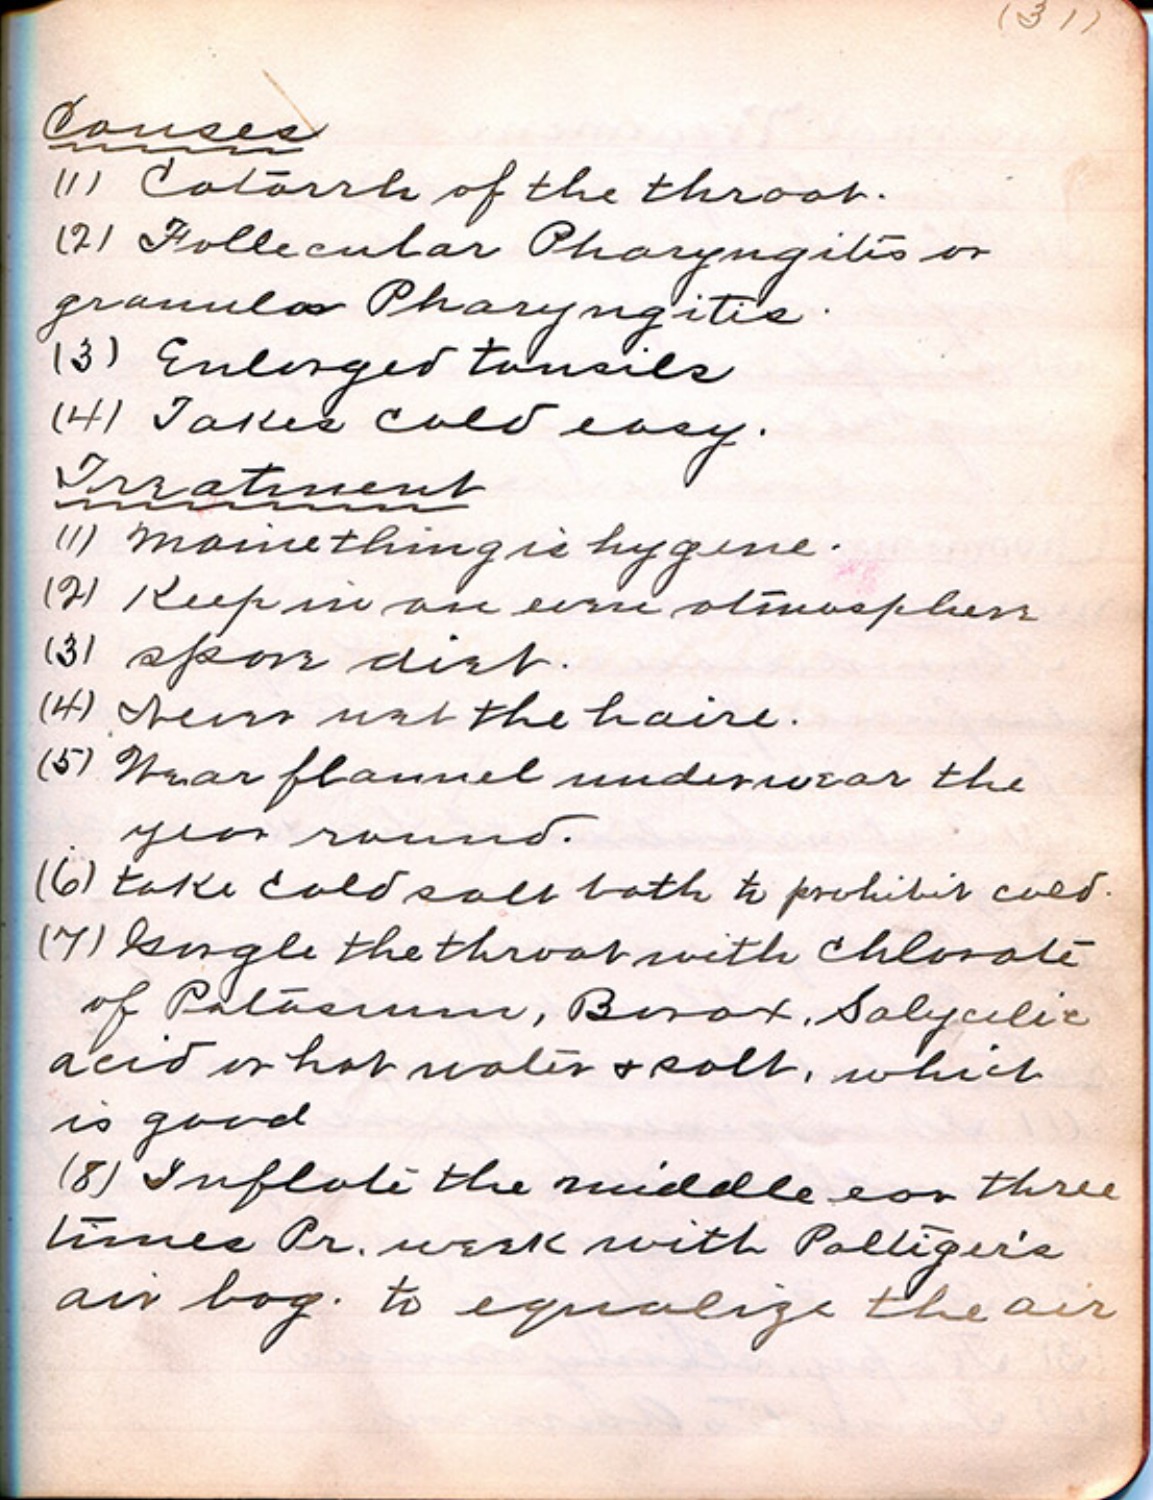 (31)
Causes
(1) Catarrh of the throat.
(2) Follecular Pharyngitis or
granular Pharyngitis.
(3) Enlarged tonsils
(4) Takes cold easy.
Treatment
(1) Maine thing is hygene.
(2) Keep in an even atmosphere
(3) spare diet.
(4) Never wet the haire.
(5) Wear flannel underwear the
year round.
(6) take cold salt bath to prohibit cold.
(7) Gargle the throat with Chlorate
of Patassium, Borax, Salycilic
acid or hot water & salt, which
is good
(8) Inflate the middle ear three
times Pr. week with Poltiger's
air bag. to equalize the air